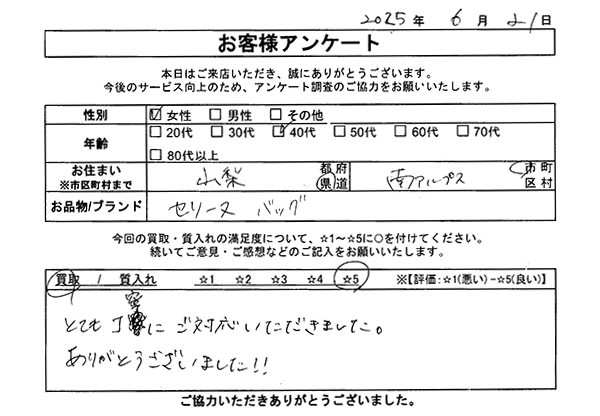 2025年 6月 21日
お客様アンケート
本日はご来店いただき、誠にありがとうございます。
今後のサービス向上のため、アンケート調査のご協力をお願いいたします。
性別 ☑女性 □男性 □その他
年齢 □20代 □30代 ☑40代 □50代 □60代 □70代
□80代以上
お住まい
※市区町村まで 山梨 都府県道 南アルプス 市町区村
お品物/ブランド セリーヌ バッグ
今回の買取・質入れの満足度について、☆1～☆5に○を付けてください。
続いてご意見・ご感想などのご記入をお願いいたします。
買取 / 質入れ ☆1 ☆2 ☆3 ☆4 ☆5 ※【評価:☆1(悪い)－☆5(良い)】
とても丁寧にご対応いただきました。
ありがとうございました!!
ご協力いただきありがとうございました。